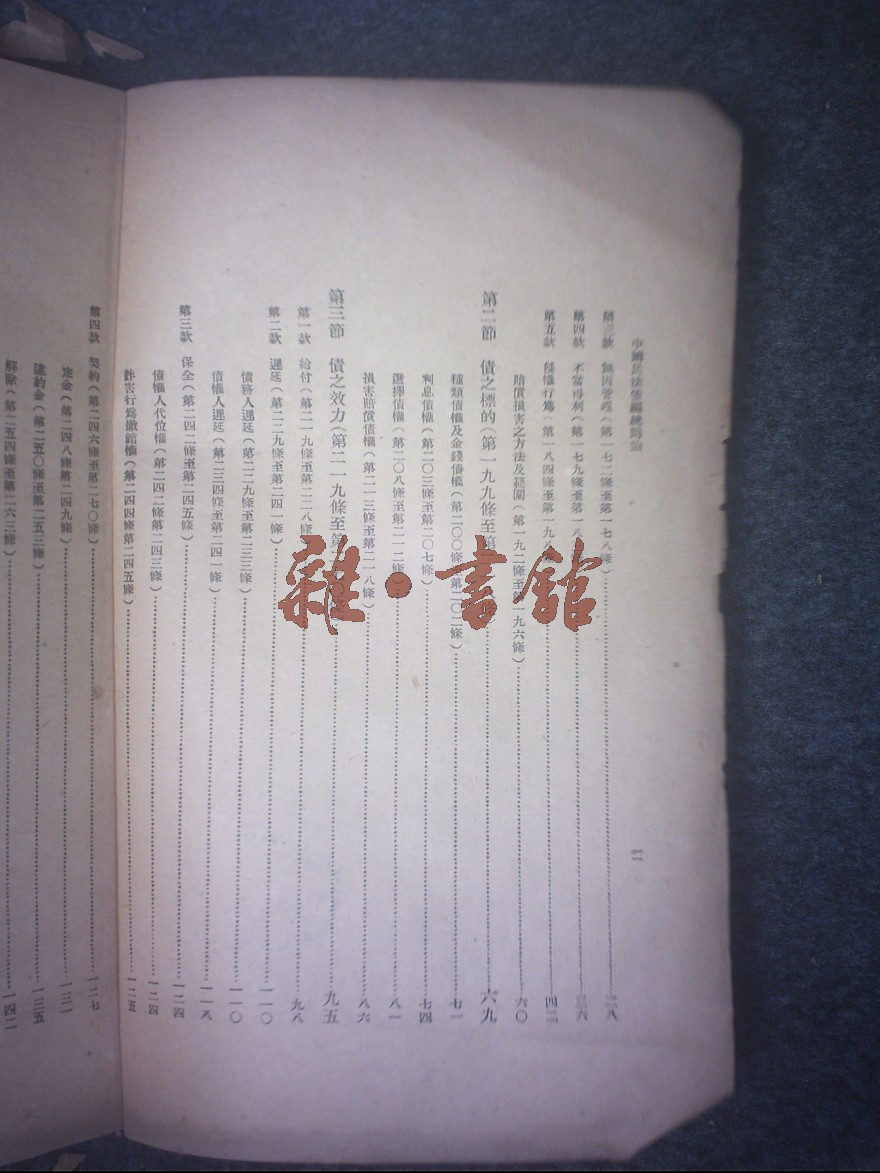 中國民法債編總則論
二
第三款 無因管理(第一七二條至第一七八條)二八
第四款 不當得利(第一七九條至第一八 三六
第五款 侵權行爲(第一八四條至第一九八條 四二
賠償損害之方法及範圍(第一九二條至第一九六條)六〇
第二節 債之標的(第一九九條至第 六九
種類債權及金錢債權(第二〇〇條 第二〇二條)七一
利息債權(第二〇三條至第二〇七條)七四
選擇債權(第二〇八條至第二一二條)八一
損害賠償債權(第二一三條至第二一八條)八六
第三節 債之效力(第二一九條至第 九五
第一款 給付(第二一九條至第二二八條 九八
第二款 遲延(第二二九條至第二四一條)一一〇
債務人遲延(第二二九條至第二三三條)一一〇
債權人遲延(第二三四條至第二四一條)一一八
第三款 保全(第二四二條至第二四五條)一二四
債權人代位權(第二四二條第二四三條)一二四
詐害行爲撤銷權(第二四四條第二四五條)一二五
第四款 契約(第二四六條至第二七〇條)一二七
定金(第二四八條第二四九條)一三一
違約金(第二五〇條至第二五三條)一三五
解除(第二五四條至第二六三條)一四二
雜·書館